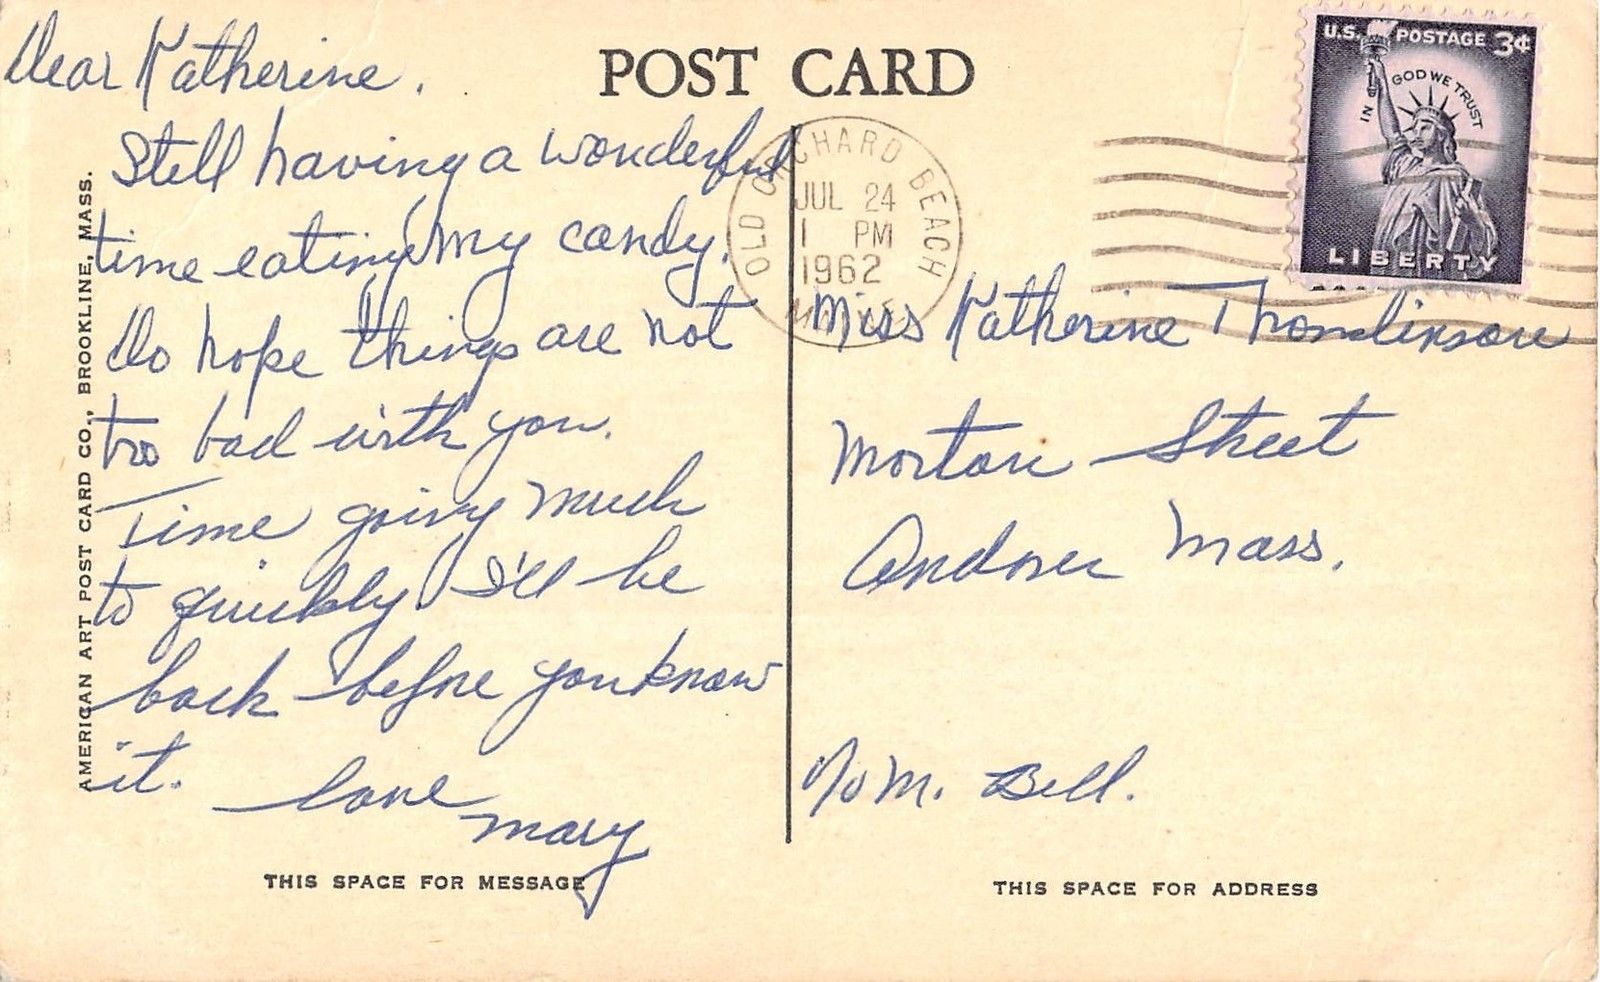 POST CARD
Dear Katherine.
Still having a wonderful
time eating my candy.
Do hope things are not
too bad with you.
Time going much
to quickly I'll be
back before you know
it. Love
Mary
THIS SPACE FOR MESSAGE
AMERICAN ART POST CARD CO., BROOKLINE, MASS.
OLD ORCHARD BEACH
JUL 24
1 PM
1962
MAINE
U.S. POSTAGE 3¢
IN GOD WE TRUST
LIBERTY
Miss Katherine Thomlinson
Morton Street
Andover Mass.
c/o M. Bell.
THIS SPACE FOR ADDRESS